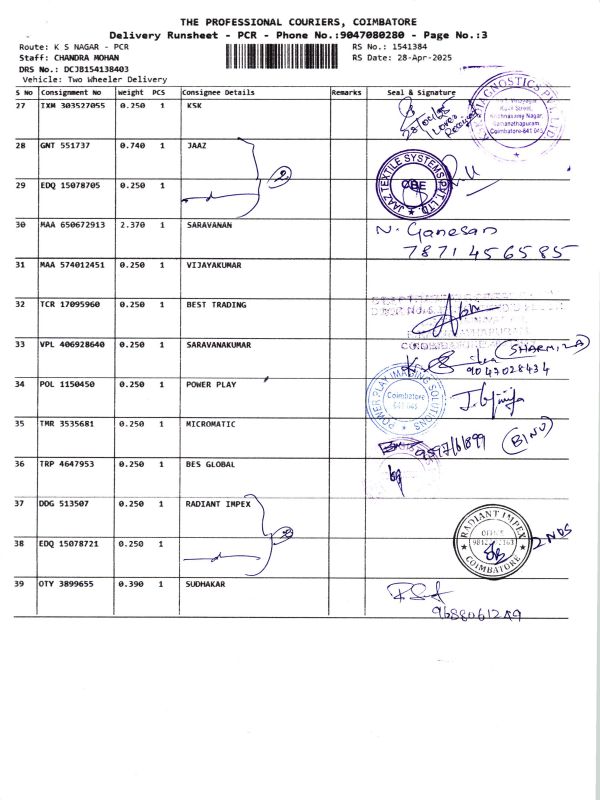 THE PROFESSIONAL COURIERS, COIMBATORE
Delivery Runsheet - PCR - Phone No.:9047080280 - Page No.:3
Route: K S NAGAR - PCR RS No.: 1541384
Staff: CHANDRA MOHAN RS Date: 28-Apr-2025
DRS No.: DCJB154138403
Vehicle: Two Wheeler Delivery
S No Consignment No Weight PCS Consignee Details Remarks Seal & Signature
27 IXM 303527055 0.250 1 KSK
DIAGNOSTICS PVT. LTD
Krishnasamy Nagar,
Ramanathapuram,
Coimbatore-641 045
28 GNT 551737 0.740 1 JAAZ
29 EDQ 15078705 0.250 1
2
JAAZ TEXTILE SYSTEMS PVT. LTD
CBE
30 MAA 650672913 2.370 1 SARAVANAN N. Ganesan
7871456585
31 MAA 574012451 0.250 1 VIJAYAKUMAR
32 TCR 17095960 0.250 1 BEST TRADING
33 VPL 406928640 0.250 1 SARAVANAKUMAR (SHARMILA)
9047028434
34 POL 1150450 0.250 1 POWER PLAY
POWER PLAY IMAGING SOLUTIONS
Coimbatore
641 045
35 TMR 3535681 0.250 1 MICROMATIC (BINU)
36 TRP 4647953 0.250 1 BES GLOBAL
37 DDG 513507 0.250 1 RADIANT IMPEX
38 EDQ 15078721 0.250 1
2
RADIANT IMPEX
COIMBATORE
2 NOS
39 OTY 3899655 0.390 1 SUDHAKAR